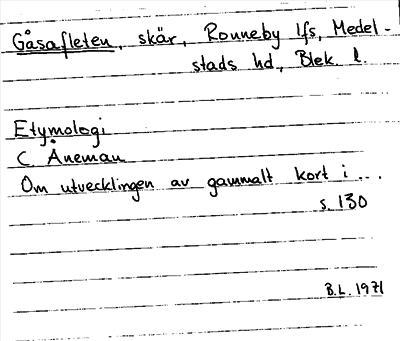 Gåsafleten, skär, Ronneby lfs, Medel-
stads hd, Blek. l.
Etymologi
C Åneman
Om utvecklingen av gammalt kort i...
s. 130
B.L. 1971